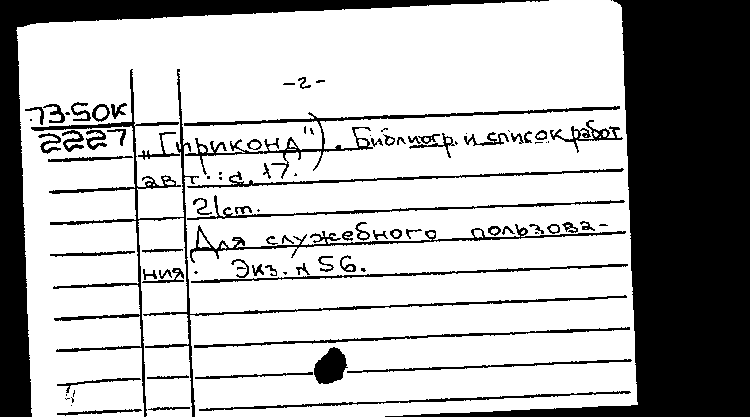 -2-
73-50К
2227
„Гириконд"). Библиогр. и список работ
авт.: с. 17.
21ст.
Для служебного пользова-
ния. Экз. № 56.
4